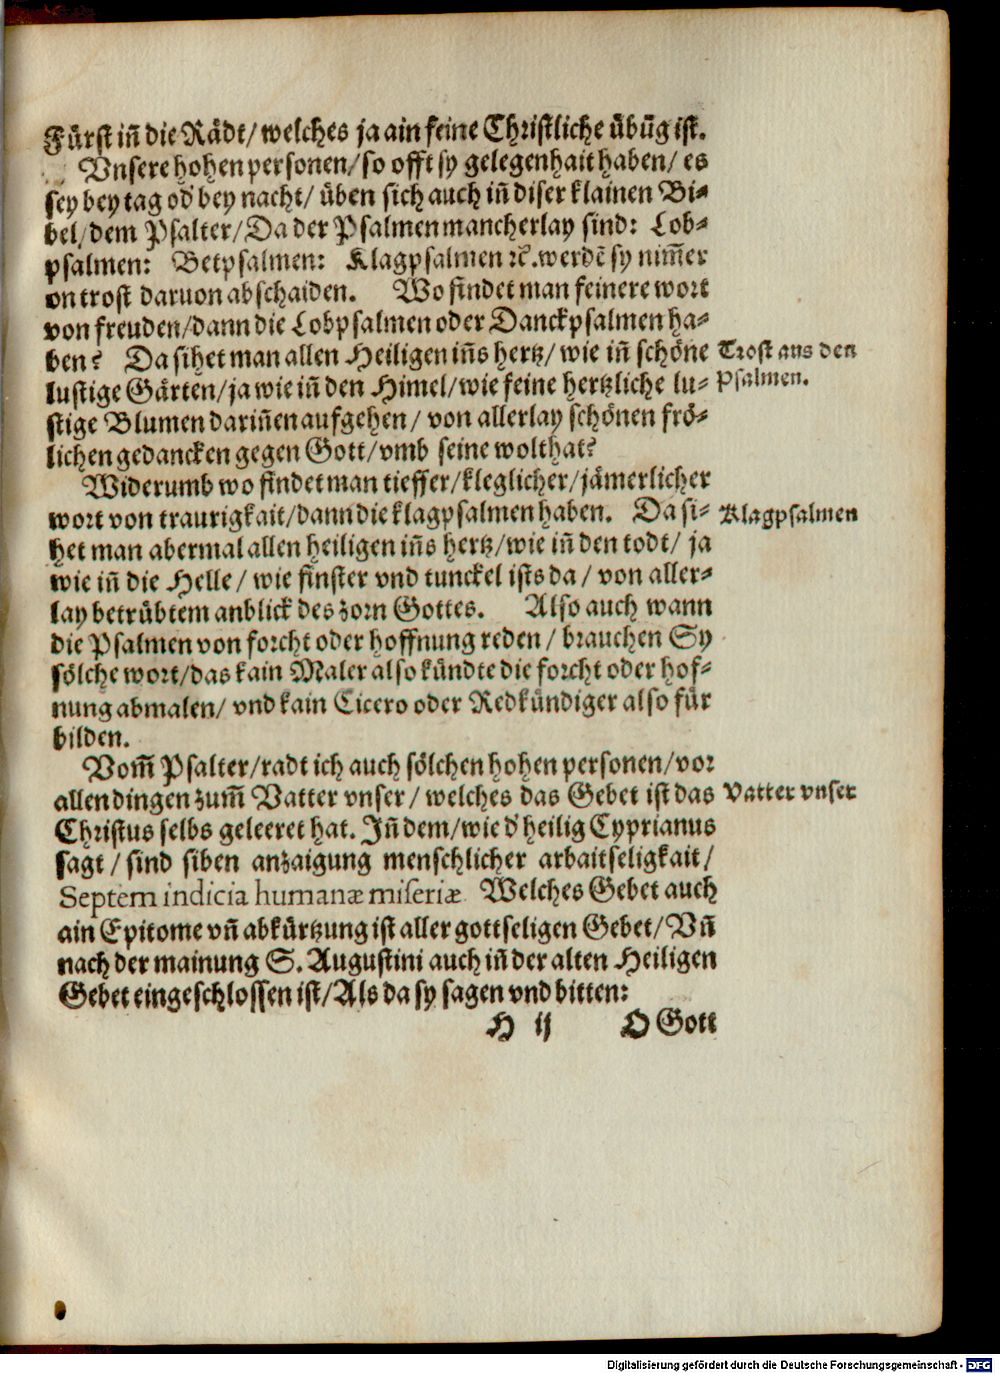 Fürst iñ die Rädt/ welches ja ain feine Christliche übũg ist.
Vnsere hohen personen/ so offt sy gelegenhait haben/ es
sey bey tag od' bey nacht/ üben sich auch iñ diser klainen Bi-
bel/ dem Psalter/ Da der Psalmen mancherlay sind: Lob-
psalmen: Betpsalmen: Klagpsalmen ꝛc. werdẽ sy nim̃er
on trost daruon abschaiden. Wo findet man feinere wort
von freuden/ dann die Lobpsalmen oder Danckpsalmen ha-
ben? Da sihet man allen Heiligen iñs hertz/ wie iñ schöne
Trost aus den
lustige Gärten/ ja wie iñ den Himel/ wie feine hertzliche lu-
Psalmen.
stige Blumen dariñen aufgehen/ von allerlay schönen frö-
lichen gedancken gegen Gott/ vmb seine wolthat?
Widerumb wo findet man tieffer/ kleglicher/ jämerlicher
wort von traurigkait/ dann die klagpsalmen haben. Da si-
Klagpsalmen
het man abermal allen heiligen iñs hertz/ wie iñ den todt/ ja
wie iñ die Helle/ wie finster vnd tunckel ists da/ von aller-
lay betrübtem anblick des zorn Gottes. Also auch wann
die Psalmen von forcht oder hoffnung reden/ brauchen Sy
sölche wort/ das kain Maler also kündte die forcht oder hof-
nung abmalen/ vnd kain Cicero oder Redkündiger also für
bilden.
Vom̃ Psalter/ radt ich auch sölchen hohen personen/ vor
allen dingen zum̃ Vatter vnser/ welches das Gebet ist das
Vatter vnser
Christus selbs geleeret hat. Iñ dem/ wie d' heilig Cyprianus
sagt/ sind siben anzaigung menschlicher arbaitseligkait/
Septem indicia humanæ miseriæ Welches Gebet auch
ain Epitome vñ abkürtzung ist aller gottseligen Gebet/ Vñ
nach der mainung S. Augustini auch iñ der alten Heiligen
Gebet eingeschlossen ist/ Als da sy sagen vnd bitten:
H ij O Gott
Digitalisierung gefördert durch die Deutsche Forschungsgemeinschaft - DFG